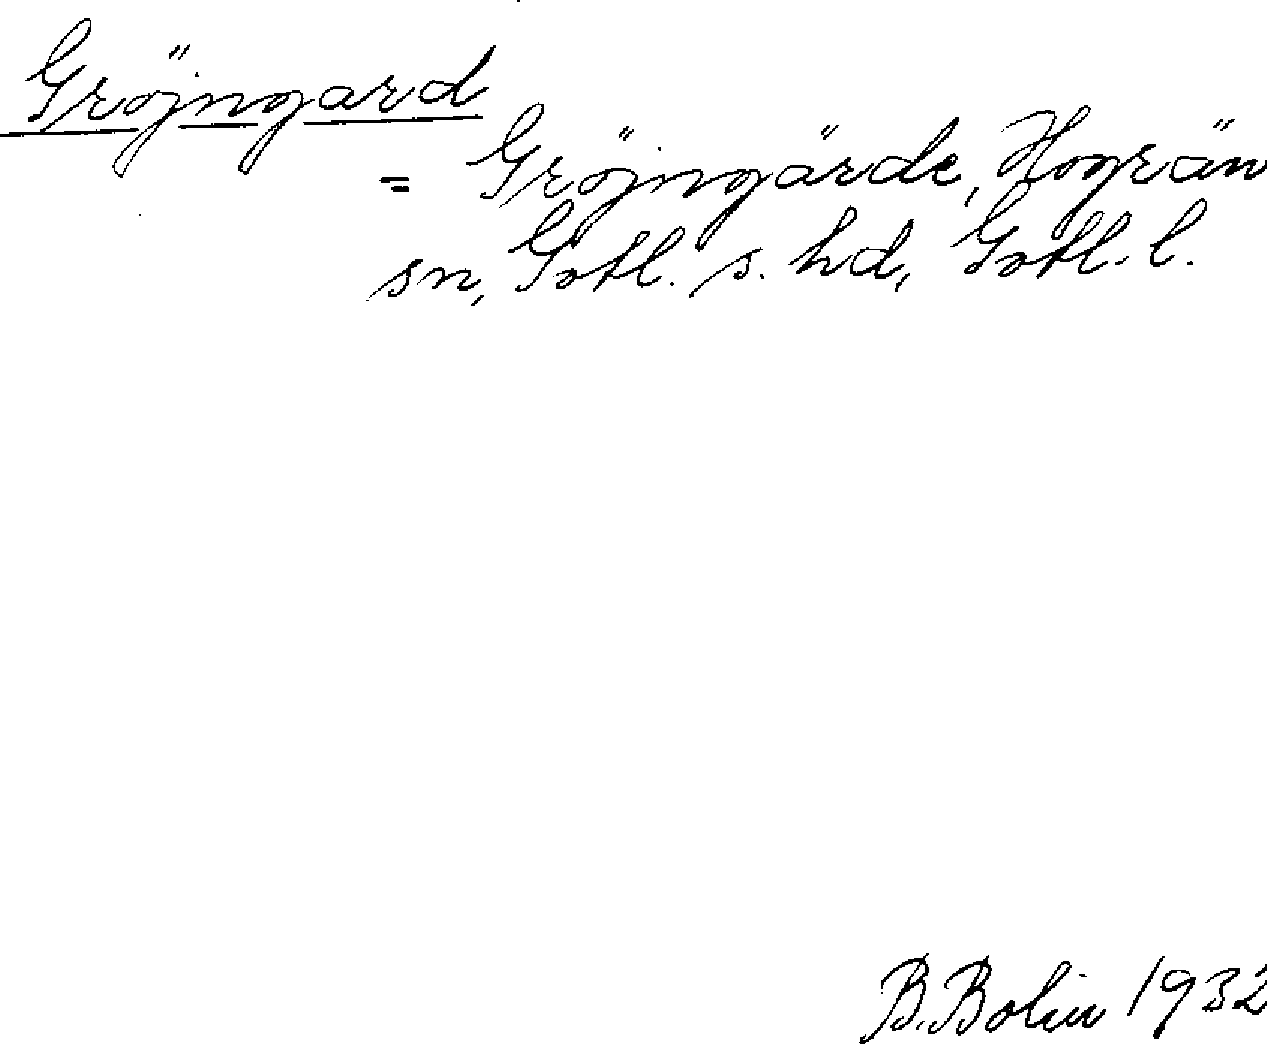 Gröjngard
= Gröjngärde, Hogrän
sn, Gotl. s. hd, Gotl. l.
B. Bolin 1932